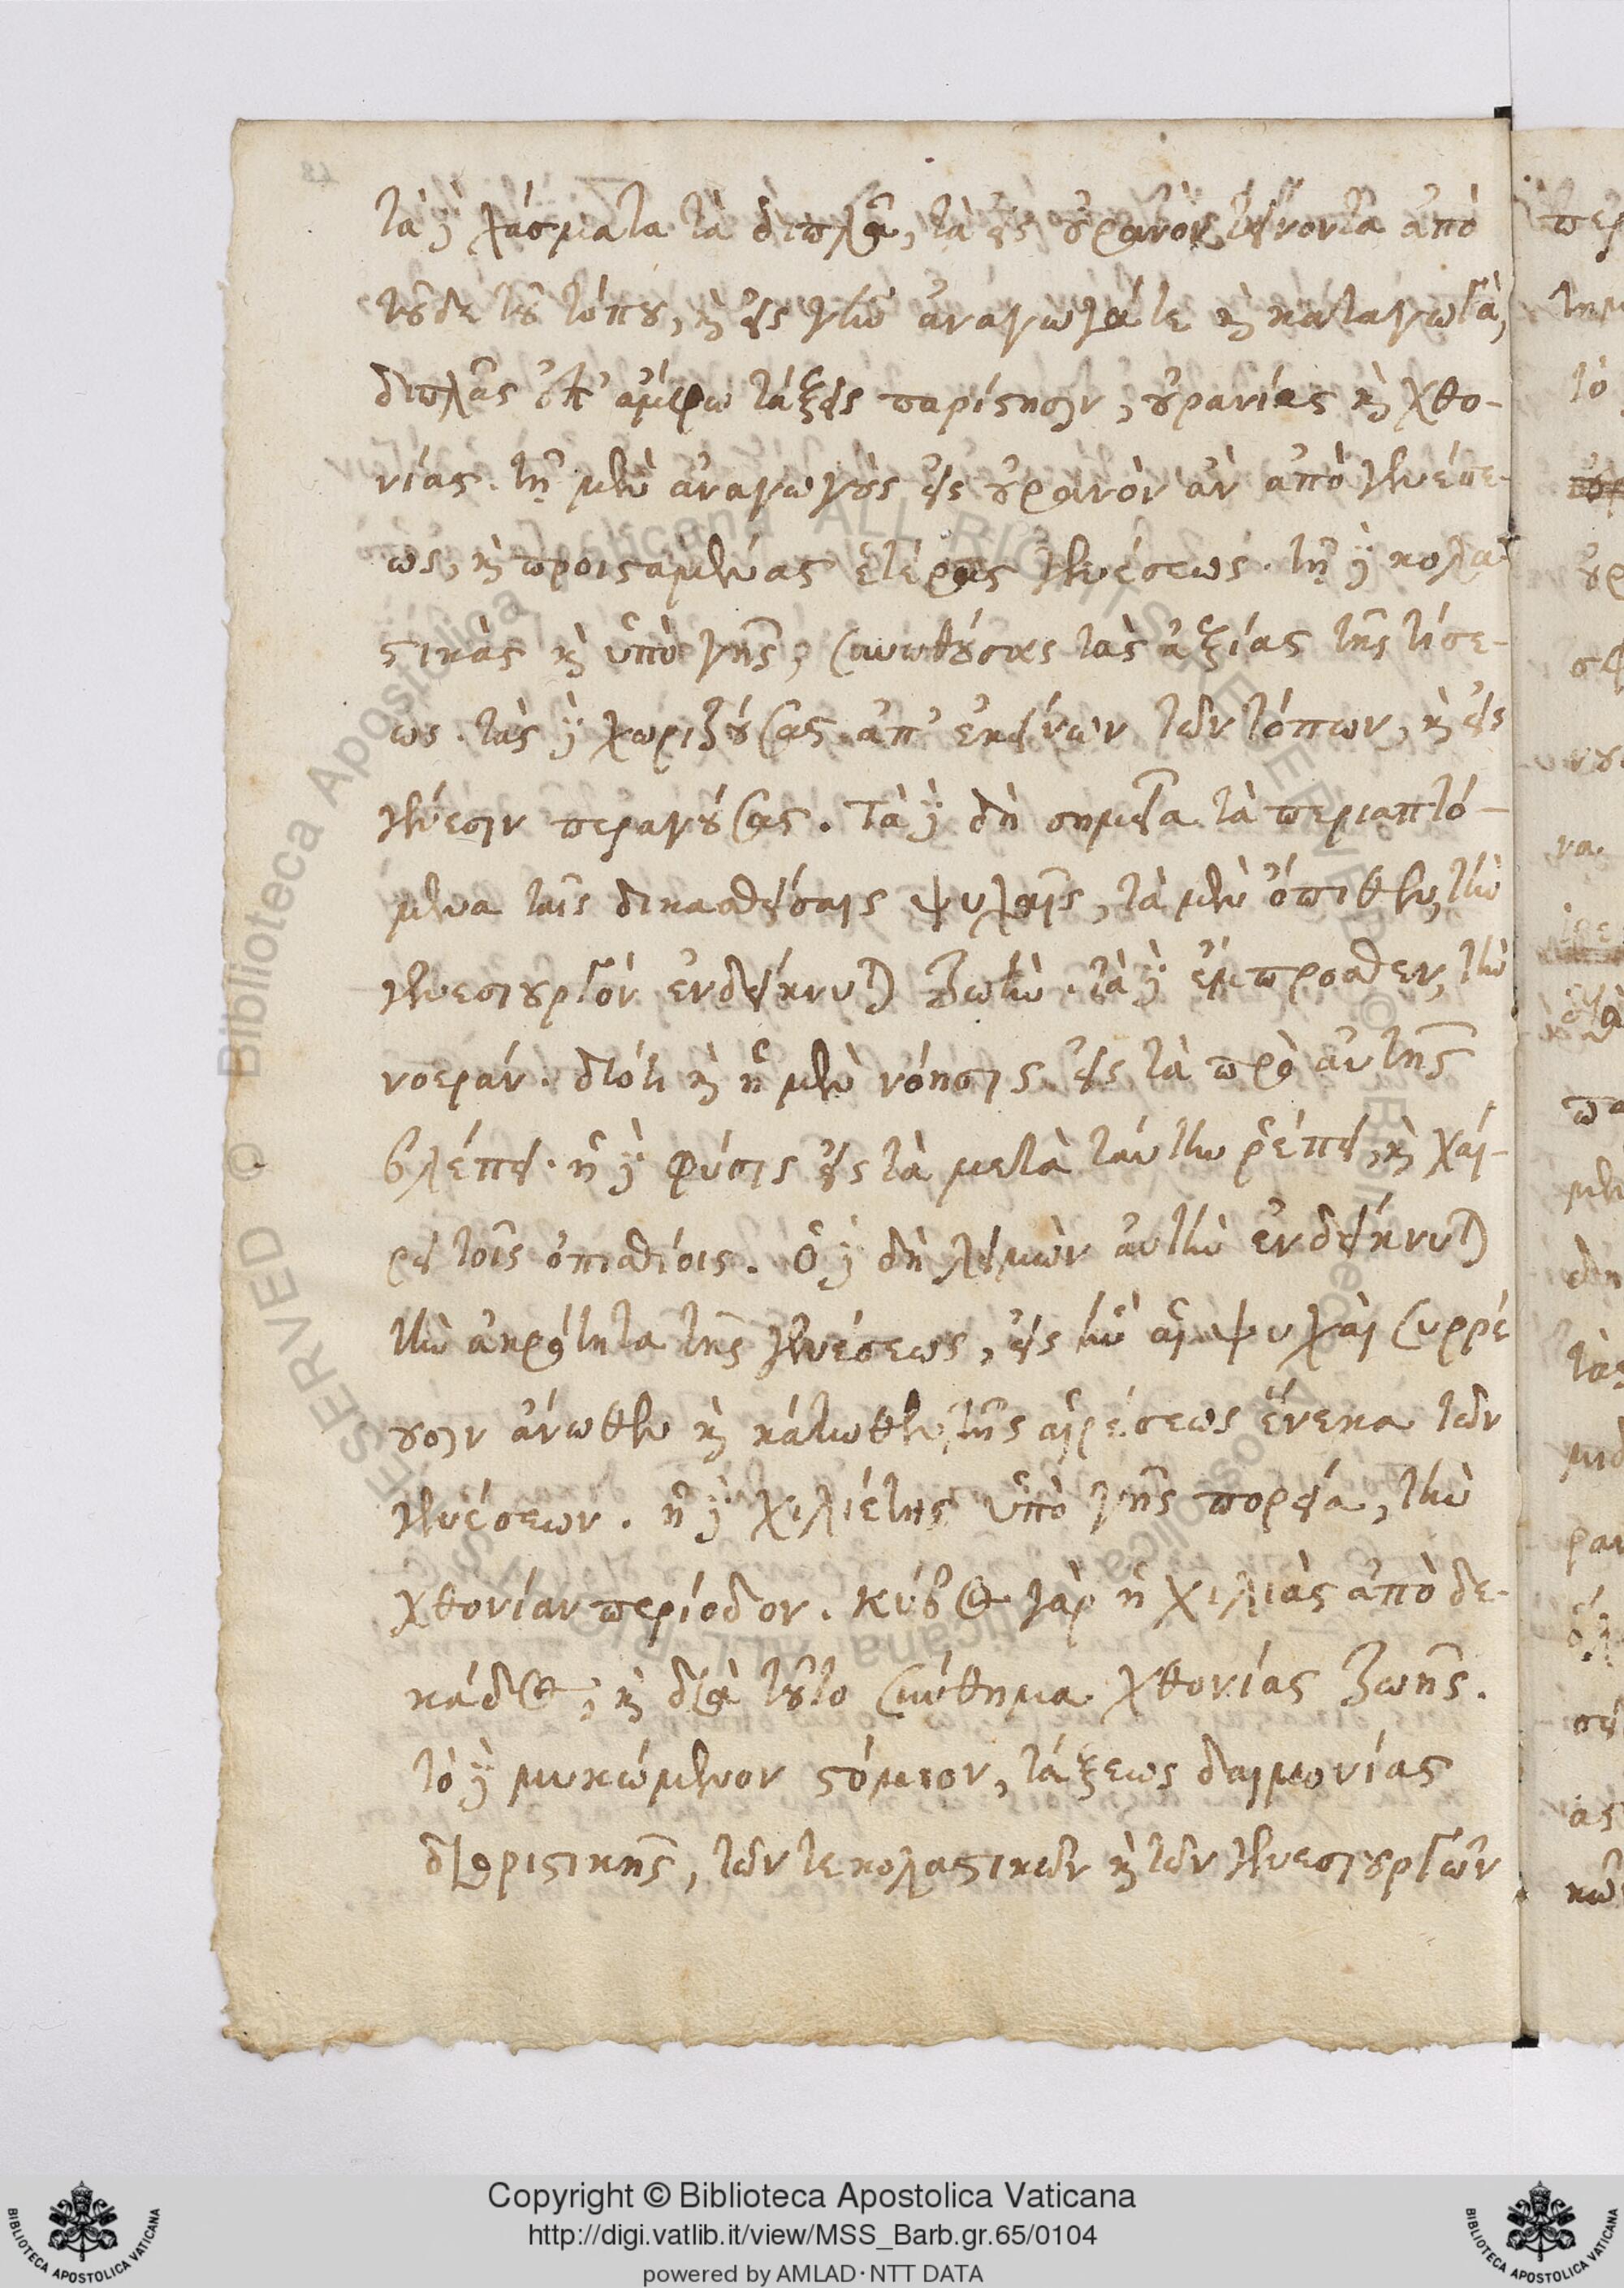 τὰ δὲ χάσματα τὰ διπλᾶ, τὰ εἰς οὐρανὸν τείνοντα ἀπὸ
τοῦδε τοῦ τόπου, καὶ εἰς γῆν ἀναγωγά τε καὶ καταγωγὰ,
διπλᾶς ἐπ' ἄμφω τάξεις παρίστησιν, οὐρανίας καὶ χθο-
νίας. τῇ μὲν ἀναγωγοὺς εἰς οὐρανὸν ἀν ἀπὸ γενέσε-
ως, καὶ προισαμένας ἑτέρας γενέσεως. τῇ δὲ κολα-
στικὰς καὶ ὑπὸ γῆς, συνωθούσας τὰς ἀξίας τῆς τίσε-
ως. τὰς δὲ χωριζούσας ἀπ' ἐκείνων τῶν τόπων, καὶ εἰς
γένεσιν περαγούσας. Τὰ δὲ δὴ σημεῖα τὰ περιαπτό-
μενα ταῖς δικασθείσαις ψυχαῖς, τὰ μὲν ὄπισθεν, τὴν
γενεσιουργὸν ἐνδείκνυται ζωήν. τὰ δὲ ἔμπροσθεν, τὴν
νοεράν. διότι καὶ ἡ μὲν νόησις εἰς τὰ πρὸ αὐτῆς
βλέπει. ἡ δὲ φύσις εἰς τὰ μετὰ ταύτην ῥέπει, καὶ χαί-
ρει τοῖς ὀπισθίοις. Ὁ δὲ δὴ λειμὼν αὐτὴν ἐνδείκνυται
τὴν ἀκρότητα τῆς γενέσεως, εἰς ἣν αἱ ψυχαὶ συρρέ
ουσιν ἄνωθεν καὶ κάτωθεν, τῆς αἱρέσεως ἕνεκα τῶν
γενέσεων. ἡ δὲ χιλιέτης ὑπὸ γῆς πορεία, τὴν
χθονίαν περίοδον. κύβος γὰρ ἡ χιλιὰς ἀπὸ δε-
κάδος, καὶ διὰ τοῦτο σύνθημα χθονίας ζωῆς.
τὸ δὲ μυκώμενον στόμιον, τάξεως δαιμονίας
διοριστικῆς, τῶν τε κολαστικῶν καὶ τῶν γενεσιουργῶν
Copyright © Biblioteca Apostolica Vaticana
http://digi.vatlib.it/view/MSS_Barb.gr.65/0104
powered by AMLAD·NTT DATA